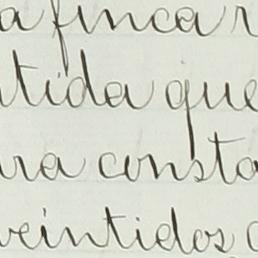 a fincar
tida que
ra consta
veintidos